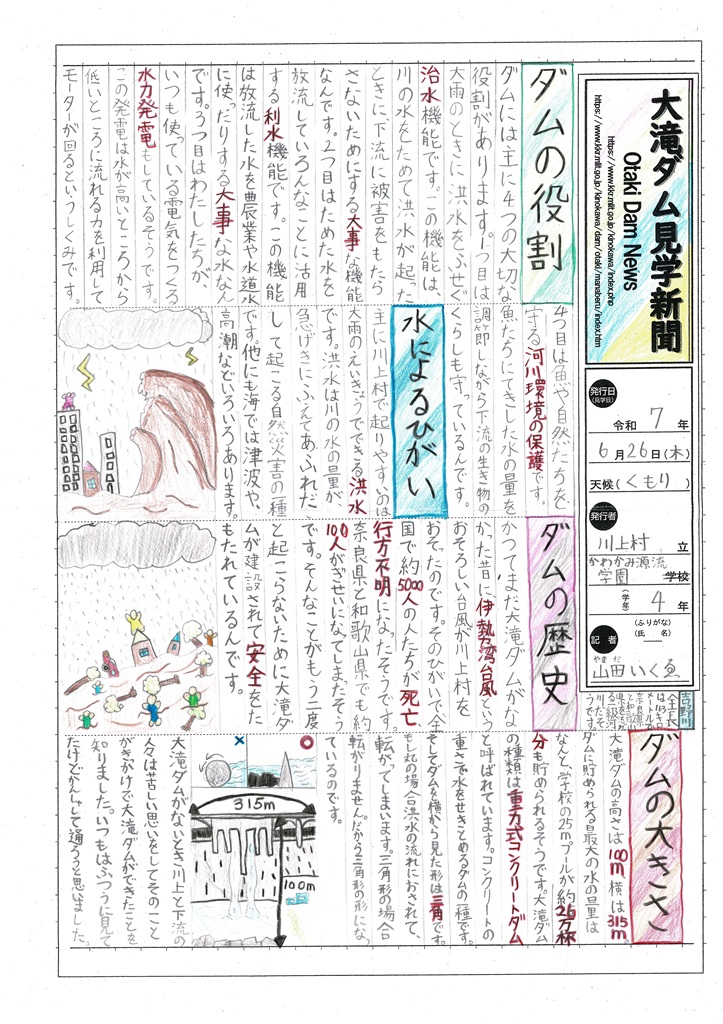 大滝ダム見学新聞
Otaki Dam News
https://www.kkr.mlit.go.jp/kinokawa/index.php
https://www.kkr.mlit.go.jp/kinokawa/dam/otaki/manaberu/index.htm
発行日
(見学日)
令和 7 年
6月26日(木)
天候(くもり)
発行者
川上村 立
かわかみ源流
学園 学校
(学年) 4 年
記者
(ふりがな)
(氏 名)
やまだ
山田いくゑ
ダムの役割
ダムには主に4つの大切な
役割があります。1つ目は
大雨のときに洪水をふせぐ
治水機能です。この機能は、
川の水をためて洪水が起った
ときに、下流に被害をもたら
さないためにする大事な機能
なんです。2つ目はためた水を
放流していろんなことに活用
する利水機能です。この機能
は放流した水を農業や水道水
に使ったりする大事な水なん
です。3つ目はわたしたちが、
いつも使っている電気をつくる
水力発電もしているそうです。
この発電は水が高いところから
低いところに流れる力を利用して
モーターが回るというしくみです。
4つ目は魚や自然たちを、
守る河川環境の保護です。
魚たちにてきした水の量を
調節しながら下流の生き物の
くらしも守っているんです。
水によるひがい
主に川上村で起りやすいのは
大雨のえいきょうでできる洪水
です。洪水は川の水の量が
急げきにふえてあふれだ
して起こる自然災害の一種
です。他にも海では津波や、
高潮などいろいろあります。
ダムの歴史
かつてまだ大滝ダムがな
かった昔に伊勢湾台風という
おそろしい台風が川上村を
おそったのです。そのひがいで、全
国で約5000人の人たちが死亡、
行方不明になったそうです。
奈良県と和歌山県でも約
100人がぎせいになってしまったそう
です。そんなことがもう二度
と起こらないために大滝ダ
ムが建設されて安全をた
もたれているんです。
吉野川
全長
ダムの大きさ
大滝ダムの高さは100m、横は315m。
ダムに貯められる最大の水の量は
なんと、学校の25mプールが約26万杯
分も貯められるそうです。大滝ダム
の種類は重力式コンクリートダム
と呼ばれています。コンクリートの
重さで水をせきとめるダムの種です。
そしてダムを横から見た形は三角です。
もし丸の場合は水の流れにおされて、
転がってしまいます。三角形の場合
転がりません。だから三角形の形になっ
ているのです。
×
○
315m
100m
大滝ダムがないとき川上と下流の
人々は苦しい思いをしてそのこと
がきっかけで大滝ダムができたことを
知りました。いつもはふつうに見て
たけどかんしゃして通ろうと思いました。